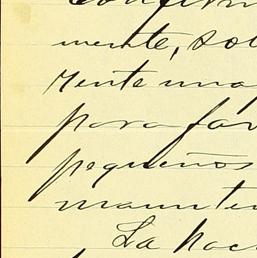 mente, sol
rente una
para for
pequeños
manten
La hac